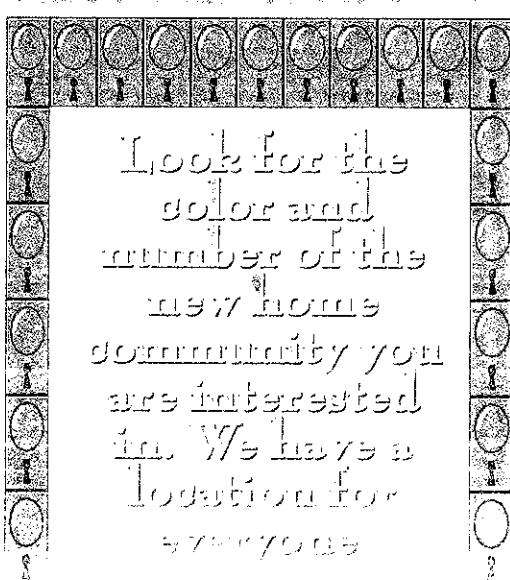 Look for the
color and
number of the
new home
community you
are interested
in. We have a
location for
everyone